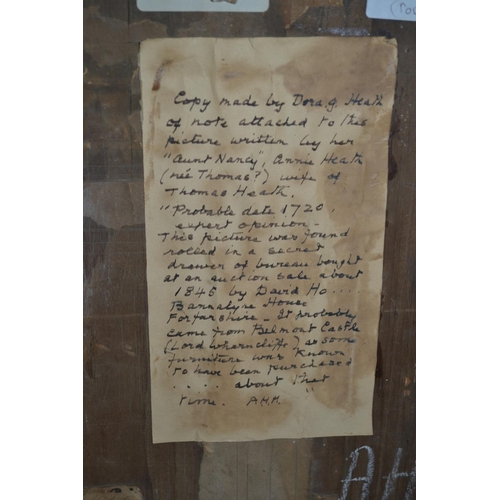 Copy made by Dora. G. Heath
of note attached to this
picture written by her
"Aunt Nancy", Annie Heath
(née Thomas?) wife of
Thomas Heath.
"Probable date 1720,
expert opinion -
This picture was found
rolled in a secret
drawer of bureau bought
at an auction sale about
1845 by David Ho....
House
Forfarshire - It probably
came from Belmont Castle
(Lord Wharncliffe) as some
furniture was known
to have been purchased
..... about that
time. A.H.H.